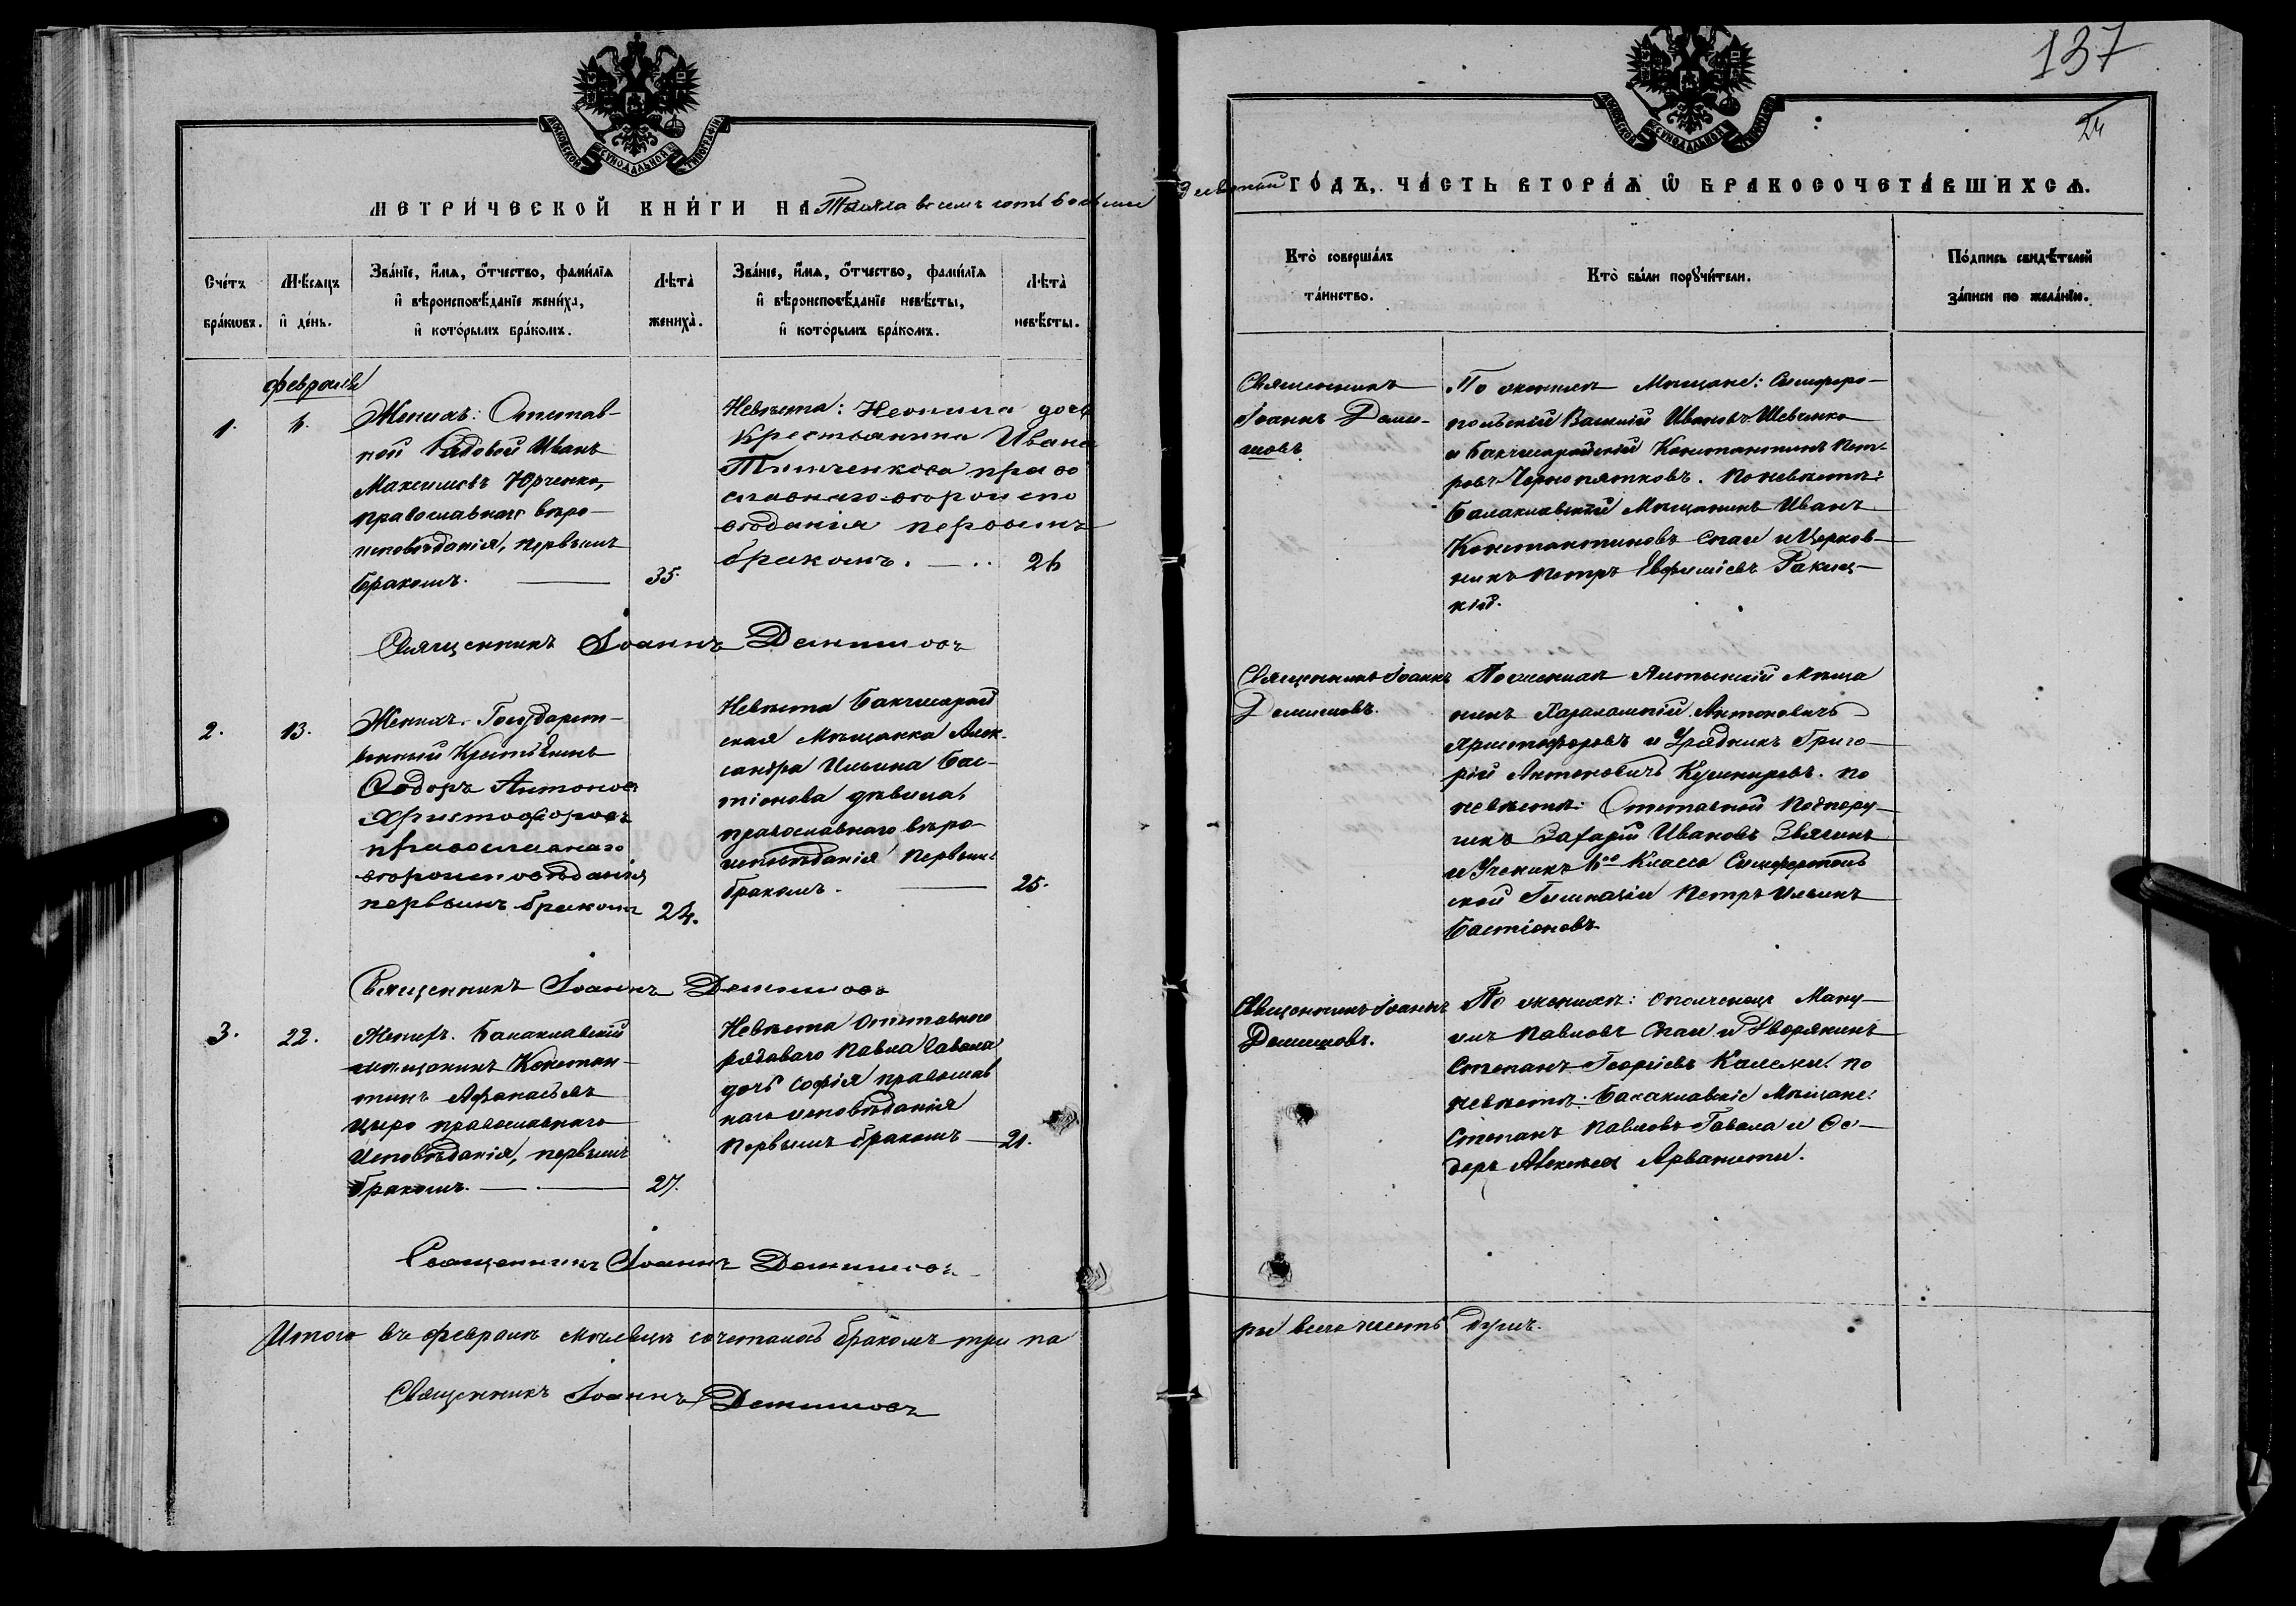 137
24
МОСКОВСКОЙ СѴНОДАЛЬНОЙ ТИПОГРАФІИ
МОСКОВСКОЙ СѴНОДАЛЬНОЙ ТИПОГРАФІИ
МЕТРИ́ЧЕСКОЙ КНИ́ГИ НА Тысяча восемь сотъ
ГО́ДЪ, ЧА́СТЬ ВТОРА́Ѧ Ѿ БРАКОСОЧЕТА́ВШИХСѦ.
Сче́тъ бра́кѡвъ.
Мѣ́сѧцъ и҆ де́нь.
Зва́нїе, и҆́мѧ, ѻ҆́тчество, фами́лїѧ
и҆ вѣроисповѣ́данїе жениха̀,
и҆ кото́рымъ бра́комъ.
Лѣта̀ жениха̀.
Зва́нїе, и҆́мѧ, ѻ҆́тчество, фами́лїѧ
и҆ вѣроисповѣ́данїе невѣ́сты,
и҆ кото́рымъ бра́комъ.
Лѣта̀ невѣ́сты.
Кто̀ соверша́лъ
та́инство.
Кто̀ бы́ли порꙋчи́тели.
По́дпись свидѣ́телей
за́писи по жела́нїю.
февраль
1.
6.
Женихъ: Отстав-
ной Рядовой Иванъ
Максимовъ Юрченко,
православнаго вѣро-
исповѣданія, первымъ
бракомъ.
35.
Невѣста: Неонила дочь
Крестьянина Ивана
право
славнаго вѣроиспо
вѣданія первымъ
бракомъ.
26
Священникъ
Іоаннъ Деми-
шовъ
По женихѣ Мѣщане: Симферо-
польскій Василій Ивановъ Шевченко
и Бахчисарайскій Константинъ Пет-
ровъ Чернопятковъ. По невѣстѣ:
Балаклавскій Мѣщанинъ Иванъ
Константиновъ Спаи и Церков-
никъ Петръ Евфиміевъ Ракиц-
кій.
Священникъ Іоаннъ Демишовъ
2.
13.
Женихъ. Государст-
венный Крестьянинъ
Ѳеодоръ Антоновъ
Христофоровъ
православнаго
вѣроисповѣданія
первымъ бракомъ
24.
Невѣста Бахчисарай
ская Мѣщанка Алек-
сандра Ильина Бас-
тіонова дѣвица,
православнаго вѣро-
исповѣданія первымъ
бракомъ.
25.
Священникъ Іоаннъ
Демишовъ.
По женихѣ Ялтынскій Мѣща
нинъ Харалампій Антоновичъ
Христофоровъ и Урядникъ Григо-
рій Антоновичъ Кушнаревъ. по
невѣстѣ: Отставной Подпору-
чикъ Захарій Ивановъ Звягинъ
и Ученикъ 6го Класса Симферополь
ской Гимназіи Петръ Ильинъ
Бастіоновъ
Священникъ Іоаннъ Демишовъ
3.
22.
Женихъ. Балаклавскій
мѣщанинъ Констан-
тинъ Афанасьевъ
Циро православнаго
исповѣданія, первымъ
бракомъ.
27.
Невѣста Отставнаго
рядоваго Павла Гавала
дочь Софія православ
наго исповѣданія
первымъ бракомъ
21.
Священникъ Іоаннъ
Демишовъ.
По женихѣ: Ополченецъ Ману-
илъ Павловъ Спаи и Дворянинъ
Степанъ Георгіевъ по
невѣстѣ: Балаклавскіе Мѣщане:
Степанъ Павловъ Гавала и Ѳе-
доръ Алексѣевъ Арванити.
Священникъ Іоаннъ Демишовъ
Итого въ февралѣ мѣсяцѣ сочеталось бракомъ три па
ры всего шесть душъ.
Священникъ Іоаннъ Демишовъ